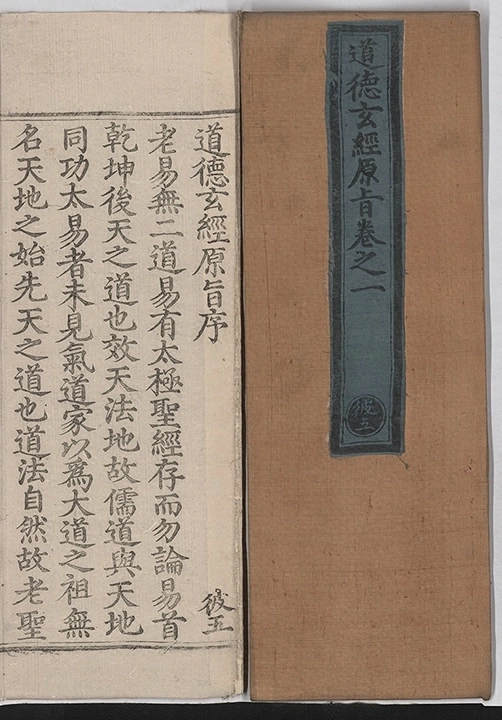 道德玄經原旨卷之一
彼五
道德玄經原旨序
彼五
老易無二道易有太極聖經存而勿論易首
乾坤後天之道也效天法地故儒道與天地
同功太易者未見氣道家以爲大道之祖無
名天地之始先天之道也道法自然故老聖